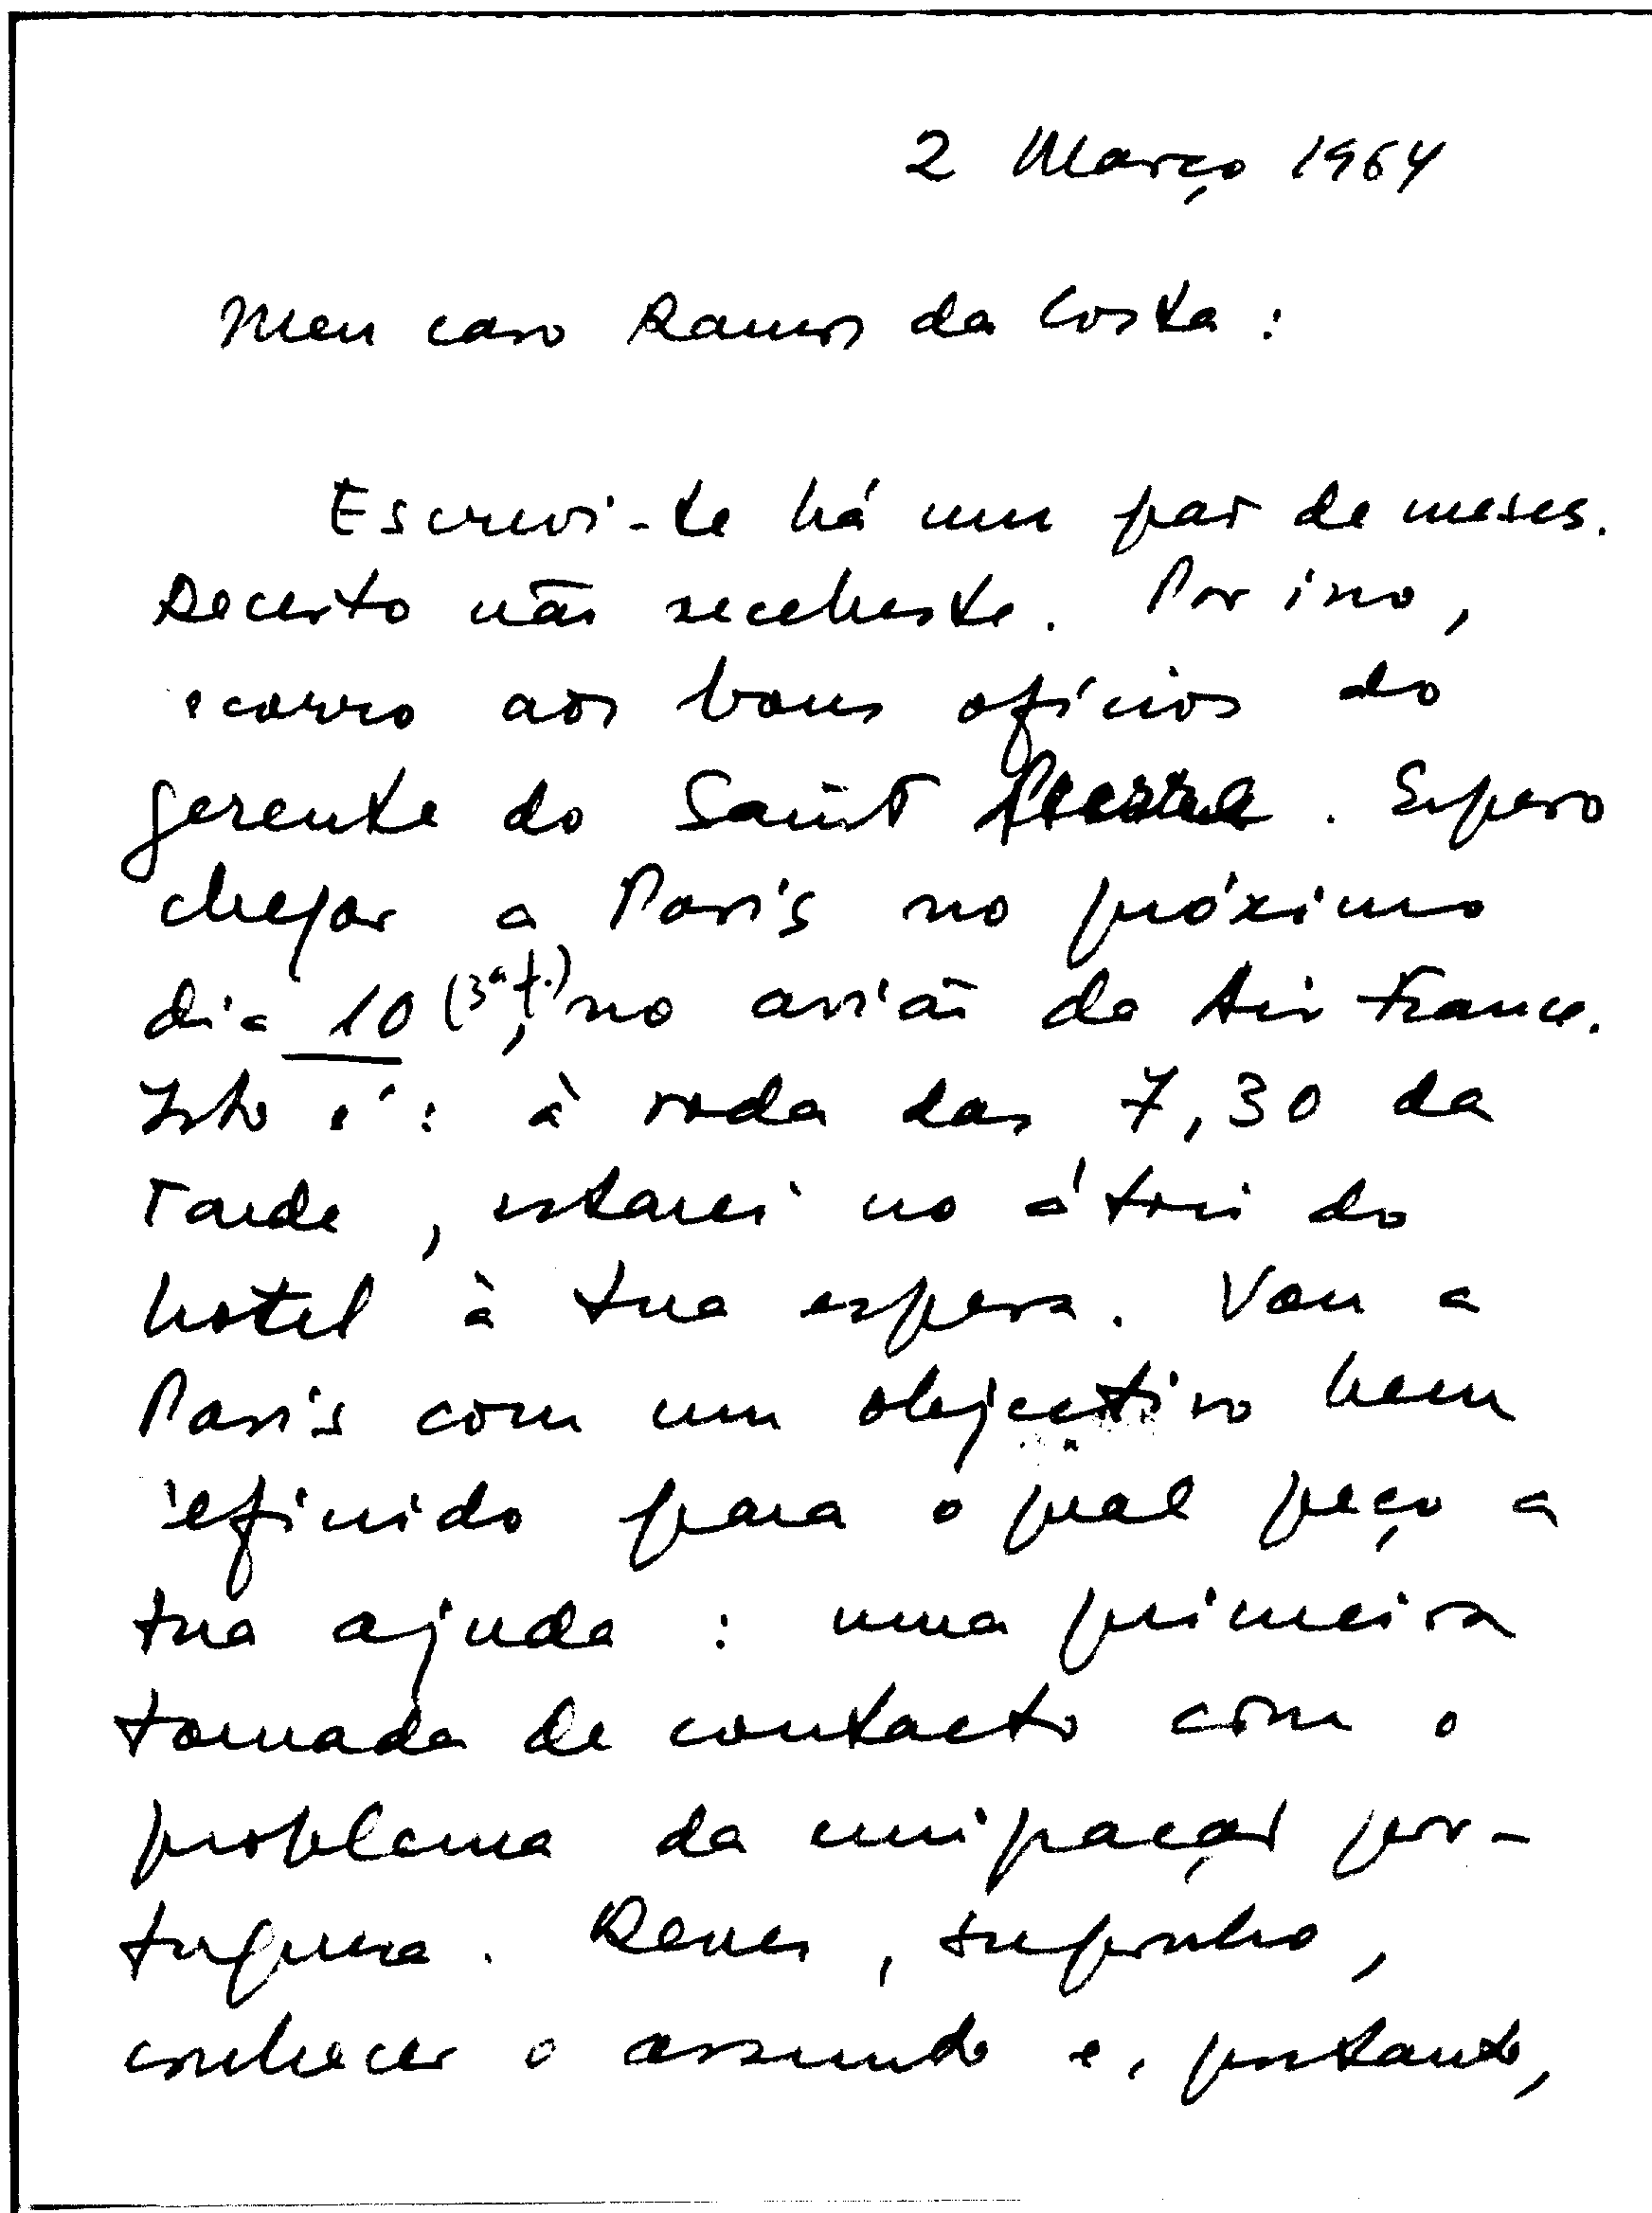 2 Março 1964
Meu caro Ramos da Costa :
Escrevi-te há um par de meses.
Decerto não recebeste. Por isso,
ecorro aos bons ofícios do
gerente do Saint Pierre. Espero
chegar a Paris no próximo
dia 10 (3ª f.), no avião da Air France.
Isto é : à roda das 7,30 da
tarde, estarei no átrio do
hotel à tua espera. Vou a
Paris com um objectivo bem
efinido para o qual peço a
tua ajuda : uma primeira
tomada de contacto com o
problema da emigração por-
tuguesa. Deves, suponho,
conhecer o assunto e, portanto,